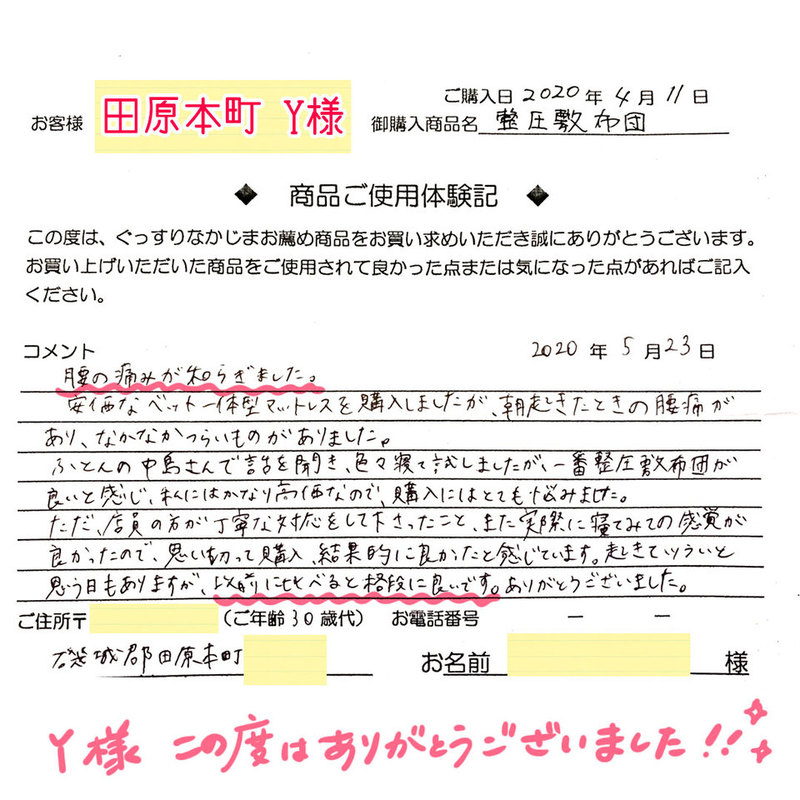 ご購入日 2020 年 4 月 11 日
お客様 田原本町 Y様 御購入商品名 整圧敷布団
◆ 商品ご使用体験記 ◆
この度は、ぐっすりなかじまお薦め商品をお買い求めいただき誠にありがとうございます。
お買い上げいただいた商品をご使用されて良かった点または気になった点があればご記入
ください。
コメント 2020 年 5 月 23 日
腰の痛みが和らぎました。
安価なベット一体型マットレスを購入しましたが、朝起きたときの腰痛が
あり、なかなかつらいものがありました。
ふとんの中島さんで話を聞き、色々寝て試しましたが、一番整圧敷布団が
良いと感じ、私にはかなり高価なので、購入にはとても悩みました。
ただ、店員の方が丁寧な対応をして下さったこと、また実際に寝てみての感覚が
良かったので、思い切って購入、結果的に良かったと感じています。起きてツラいと
思う日もありますが、以前に比べると格段に良いです。ありがとうございました。
ご住所〒 (ご年齢30歳代) お電話番号 ー ー
磯城郡田原本町 お名前 様
Y様 この度はありがとうございました!!